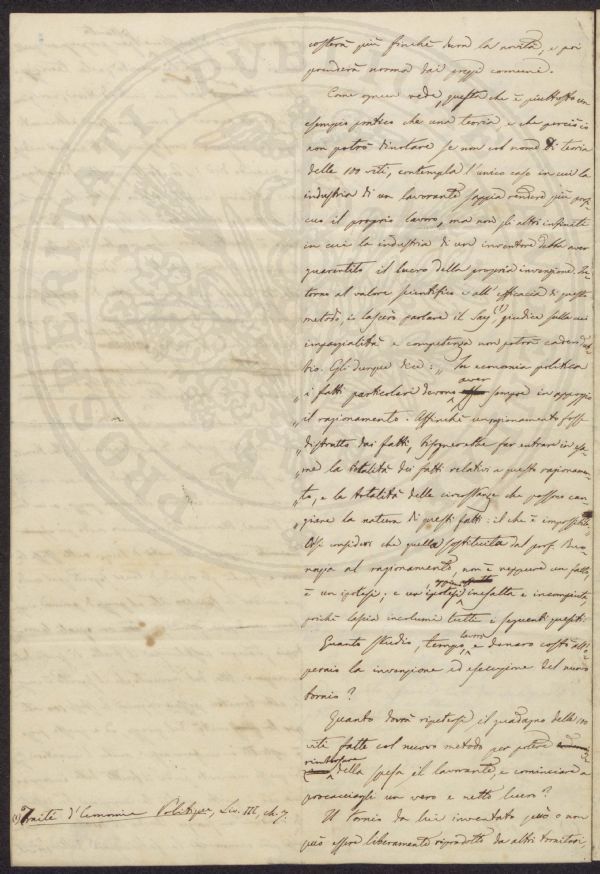 costerà più finchè dura la novità, e poi
prenderà norma dai prezzi comuni.
Come ognun vede, questa che è piuttosto un
esempio pratico che una teoria e che perciò io
non potrò dinotare se non col nome di teoria
delle 100 viti, contempla l'unico caso in cui la
industria di un lavorante sappia rendere più pro-
cuo il proprio lavoro, ma non gli altri infiniti
in cui la industria di un inventore debba aver
guarentito il lucro della propria invenzione. In-
torno al valore scientifico e all'efficacia di questo
metodo, io lascerò parlare il Say (1), giudice sulla cui
imparzialità e competenza non potrà cader dub-
bio. Egli dunque dice: „ In economia politica
„ i fatti particolari devono aver sempre in appoggio
„ il ragionamento. Affinchè un ragionamento fosse
„ distrutto dai fatti, bisognerebbe far entrare in esa-
„ me la totalità dei fatti relativi a questo ragionamen-
„ to, e la totalità delle circostanze che possono can-
„ giare la natura di questi fatti: il che è impossibile "
Così consideri che quella sostituita dal prof.
al ragionamento, non è neppure un fatto,
è un ipotesi; e un ipotesi inesatta e incompiuta,
poichè lascia incolumi tutte e seguenti quesiti:
Quanto studio, tempo, lavoro e denaro costò all'o-
peraio la invenzione ed esecuzione del nuovo
tornio?
Quanto dovrà ripetersi il guadagno delle 100
viti fatte col nuovo metodo per poter
rimborsare della spesa il lavorante, e cominciare a
procacciargli un vero e netto lucro?
Il tornio da lui inventato può o non
può essere liberamente riprodotto da altri tornitori,
(1) Traité d'Economie Politique, Liv. III, ch. 7.